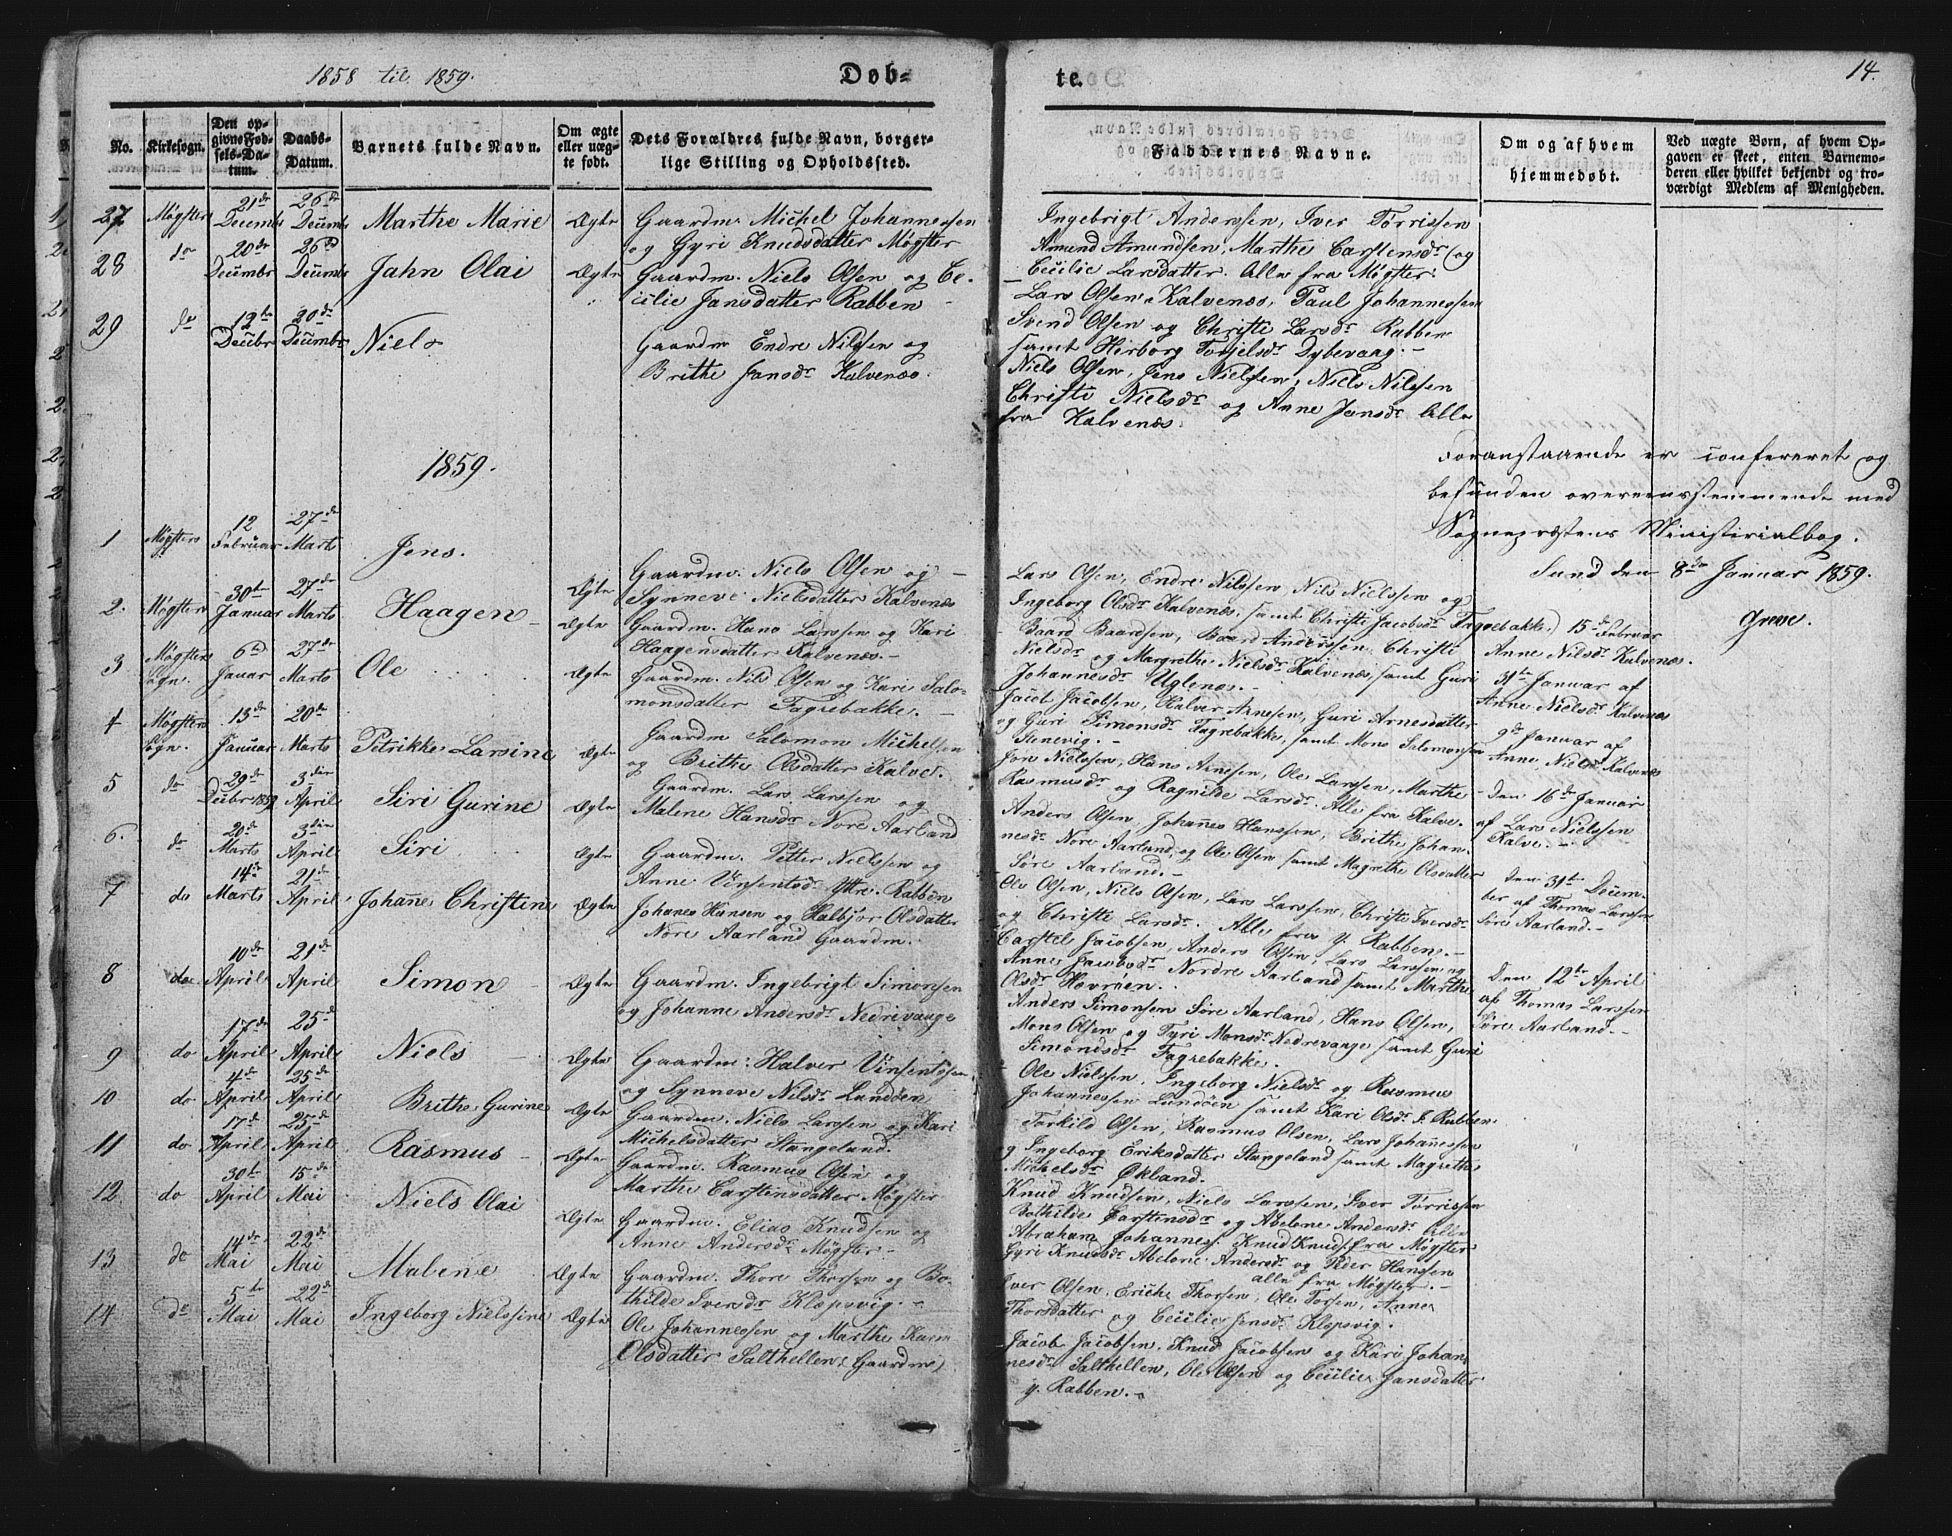 1858 til 1859.
Døb-
te.
14.
No.
Kirkesogn.
Den op-
givne Fød-
sels-Da-
tum.
Daabs-
Datum.
Barnets fulde Navn.
Om ægte
eller uæg-
te født.
Dets Forældres fulde Navn, borger-
lige Stilling og Opholdssted.
Faddernes Navne.
Om og af hvem
hjemmedøbt.
Ved uægte Børn, af hvem Op-
gaven er skeet, enten Barnemo-
deren eller hvilket bekjendt og tro-
værdigt Medlem af Menigheden.
27 Møgster 21de Decembr 26de Decembr Marthe Marie Ægte
Gaardm. Michel Johannessen
og Gyri Knudsdatter Møgster
Ingebrigt Anderssen, Iver Tørrissen
Amund Amundsen, Marthe Carstensdr og
Cecilie Larsdatter. Alle fra Møgster.
28 do 20de Decembr 26de Decembr Jahn Olai Ægte
Gaardm. Niels Olsen og Ce-
cilie Jansdatter Rabben
Lars Olsen Kalvenæs, Paul Johannessen
Svend Olsen og Christi Larsdr Rabben
samt Herborg Torjelsdr Dybevaag.
29 do 12te Decbr 20de Decembr Niels
Gaardm Endre Nilssen og
Brithe Jansdr Kalvenæs.
Niels Olsen, Jens Nielssen, Niels Nilssen
Christi Nielsdr og Anne Jensdr Alle
fra Kalvenæs.
Foranstaaende er confereret og
befunden overeensstemmende med
Sognepræstens Ministerialbog.
Sund den 8de Januar 1859.
Greve.
1859.
1 Møgsters 12 Februar 27de Marts Jens. Ægte
Gaardm. Niels Olsen og
Synneve Nielsdatter Kalvenæs
Lars Olsen, Endre Nilssen, Nils Nielssen og
Ingeborg Olsdr Kalvenæs, samt Christi Jacobsdr Fagrebakke.
15de Februar
Anne Nilsdr Kalvenæs.
2. Møgsters 30te Januar 27de Marts Haagen Ægte
Gaardm. Hans Larssen og Kari
Haagensdatter Kalvenæs.
Baard Baardsen, Baard Anderssen, Christi
Nielsdr og Margrethe Nielsdr Kalvenæs, samt Guri
Johannesdr Uglenæs.
31te Januar af
Anne Nielsdr Kalvenæs
3 Møgsters Sogn. 6te Januar 27de Marts Ole Ægte
Gaardm. Nils Olsen og Kari Salo-
monsdatter Fagrebakke.
Jacob Jacobsen, Halver Arnesen, Guri Arnesdatter
og Guri Simonsdr Fagrebakke, samt Mons Salomonsen
9de Januar af
Anne Nielsdr Kalvenæs
4 Møgsters Sogn. 13de Januar 20de Marts Petrikke Larsine Ægte
Gaardm Salomon Michelsen
og Brithe Olsdatter Kalve.
Jon Nielssen, Hans Arnesen, Ole Larssen, Marthe
Rasmusdr og Ragnilde Larsdr. Alle fra Kalve.
Den 16de Januar
af Lars Nielssen
Kalve.
5 do 29de Decbr 3die April Siri Gurine Ægte
Gaardm. Lars Larssen og
Malene Hansdr Nore Aarland
Anders Olsen, Johannes Hanssen, Brithe Johan-
nesdr Nore Aarland, og Ole Olsen samt Magrethe Olsdatter
Søre Aarland.
Den 31te Decem-
ber af Thomas Larssen
Søre Aarland.
6. do 20de Marts 3die April Siri Ægte
Gaardm. Petter Nielssen og
Anne Vinsentsdr Yttre Rabben
Ole Olsen, Niels Olsen, Lars Larssen, Christi Iversdr
og Christi Larsdr. Alle fra Y. Rabben.
7 do 14de Marts 21de April Johanne Christine Ægte
Johanes Hansen og Halbjør Olsdatter
Nore Aarland Gaardm.
Carstel Jacobsen, Anders Olsen, Lars Larssen og
Anne Jacobsdr Nordre Aarland samt Marthe
Olsdr Hevrøen.
8 do 10de April 21de April Simon Ægte
Gaardm. Ingebrigt Simonsen
og Johanne Andersdr Nedrevaage
Anders Simonsen Søre Aarland, Hans Olsen,
Mons Olsen og Tyri Monsdr Nedrevaage samt Guri
Simonsdr Fagrebakke.
Den 12te April
af Thomas Larssen
Søre Aarland.
9 do 17de April 25de April Niels Ægte
Gaardm: Halver Vinsentsen
og Synneve Nilsdr Lundøen
Ole Nielssen, Ingeborg Nielsdr og Rasmus
Johannessen Lundøen samt Kari Olsdr I. Rabben
10 do 4de April 25de April Brithe Gurine Ægte
Gaardm. Niels Larssen og Kari
Michelsdatter Stangeland.
Torkild Olsen, Rasmus Olsen, Lars Johannessen
og Ingeborg Eriksdatter Stangeland samt Magrethe
Michelsdr Økland.
11 do 17de April 25de April Rasmus Ægte
Gaardm. Rasmus Olsen og
Marthe Carstensdatter Møgster
Knud Knudsen, Niels Larssen, Iver Tørrissen
Bothilde Carstensdr og Abelone Andersdr alle
fra Møgster
12 do 30te April 15de Mai Niels Olai Ægte
Gaardm. Elias Knudsen og
Anne Andersdr Møgster
Abraham Johanness. Knud Knuds.
Gyri Knudsdr Abelone Andersdr og Peder Hanssen
alle fra Møgster.
13 do 14de Mai 22de Mai Malene Ægte
Gaardm. Thore Thorsen og Bo-
thilde Iversdr Kleppsvig.
Iver Olsen, Erich Thorsen, Ole Torsen, Anne
Thorsdatter og Cecilie Jensdr Kleppsvig.
14 do 5te Mai 22de Mai Ingeborg Nielssine Ægte
Ole Johannessen og Marthe Karin
Olsdatter Salthellen (Gaardm)
Jacob Jacobsen, Knud Jacobsen og Kari Johan-
nesdr Salthellen, Ole Olsen og Cecilie Jansdatter
y. Rabben.